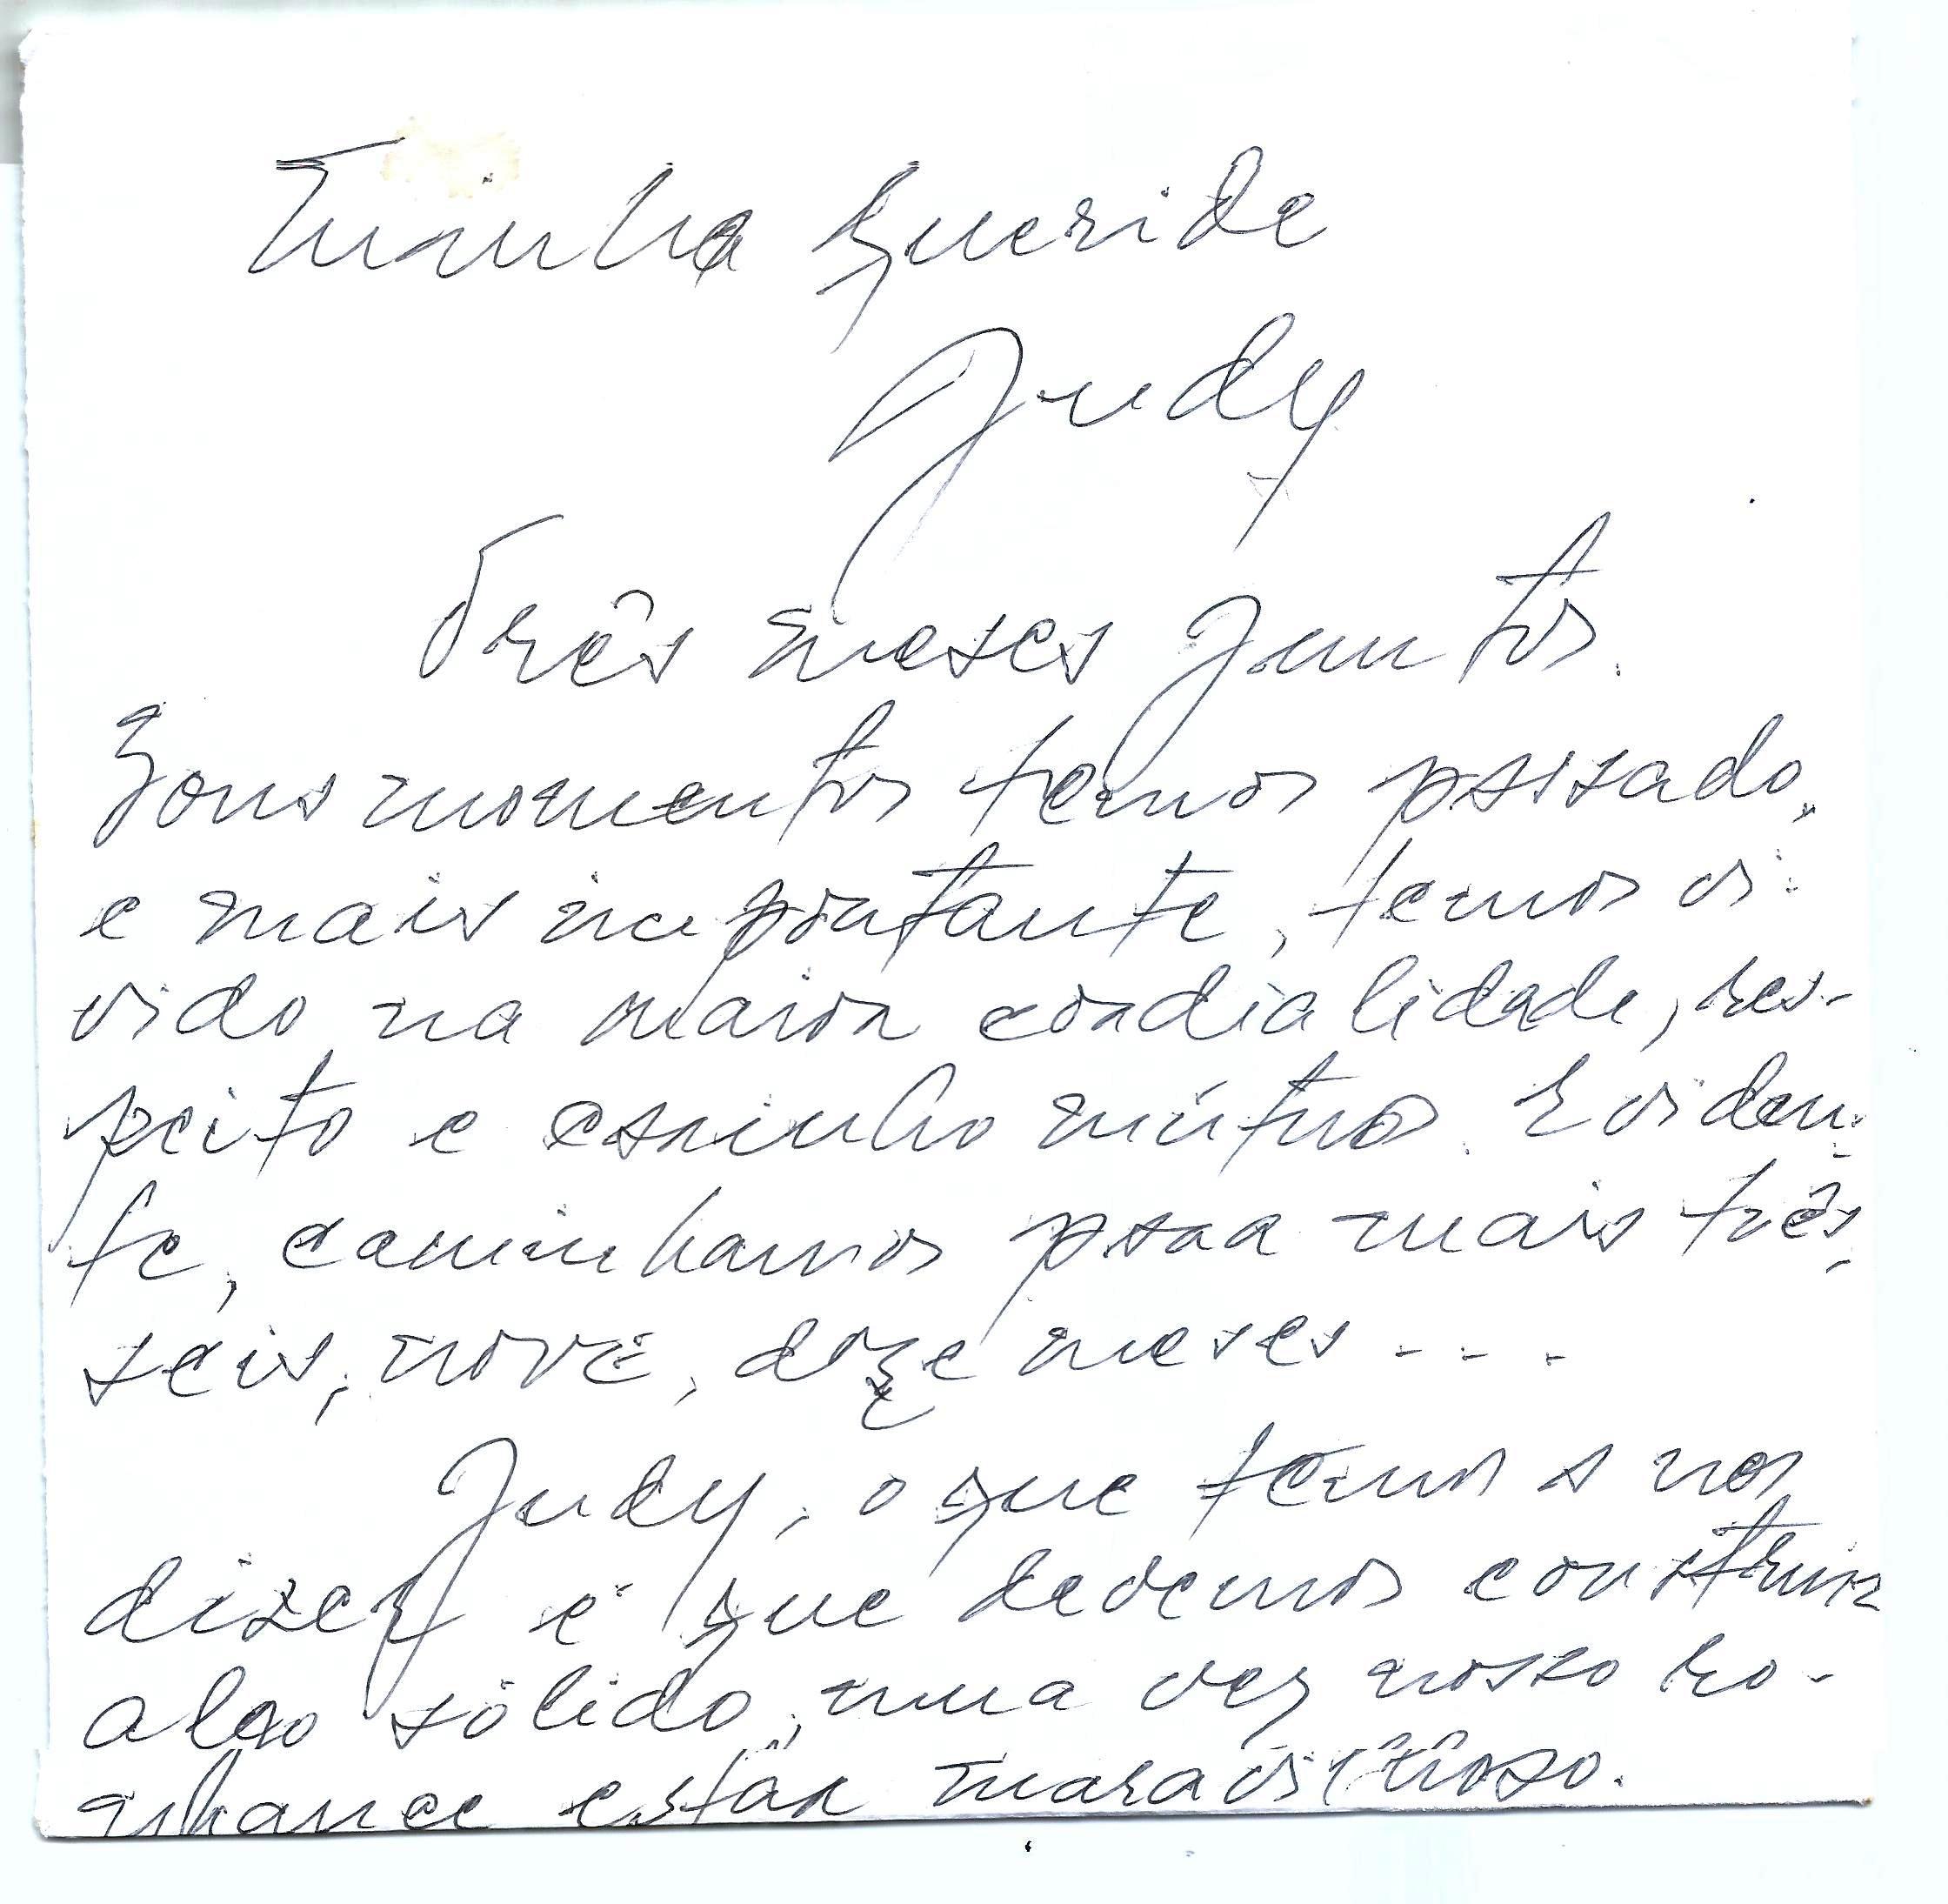 Minha Querida
Judy
Três meses juntos.
Bons momentos temos passado,
e mais importante, temos vi-
vido na maior cordialidade, res-
peito e carinho mútuos. Eviden-
te, caminhamos para mais três,
seis, nove, doze meses...
Judy, o que temos a nos
dizer é que devemos construir
algo sólido, uma vez nosso ro-
mance estar maravilhoso.